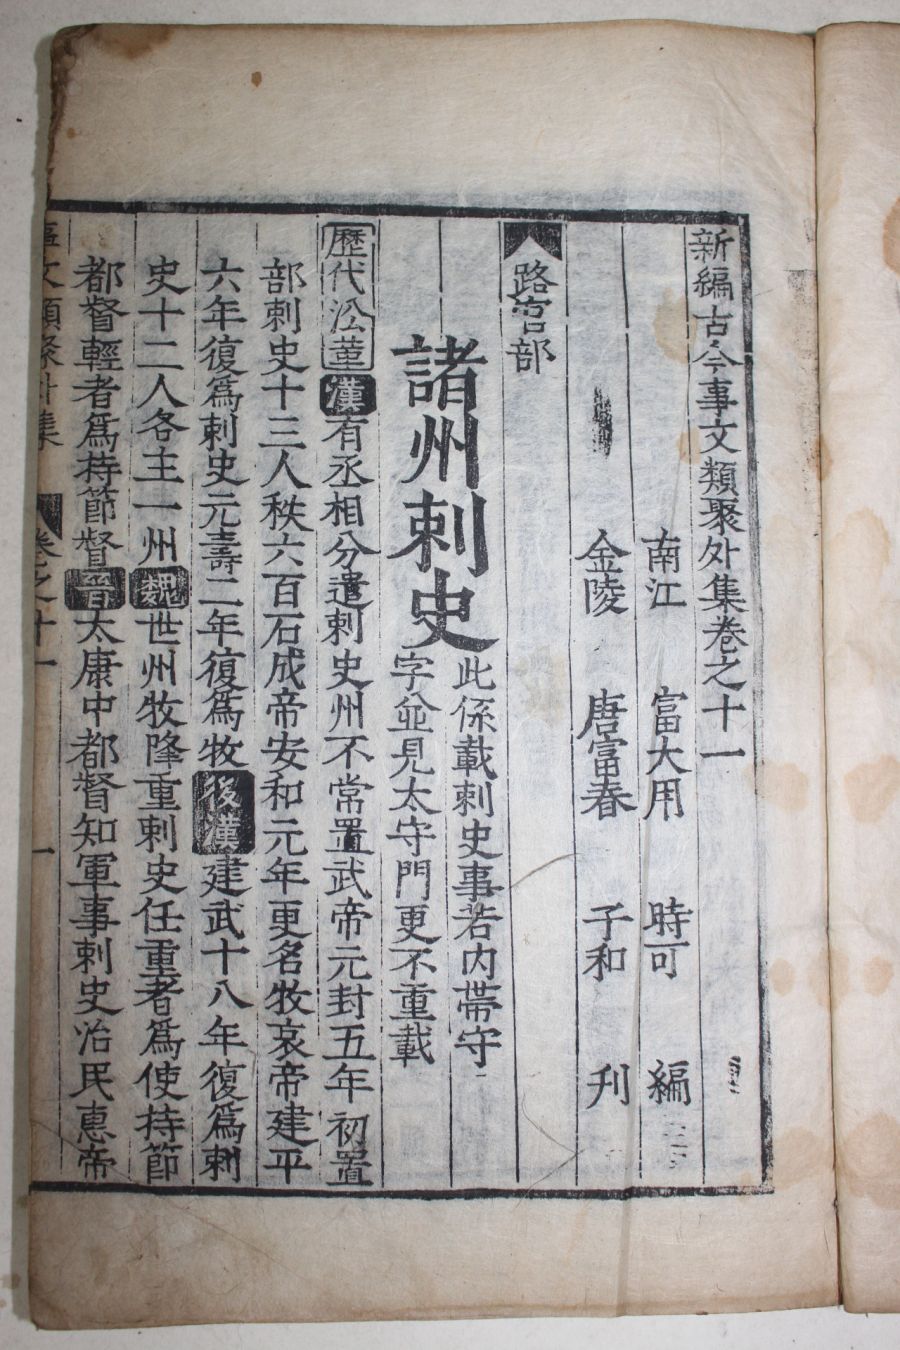 新編古今事文類聚外集卷之十一
南江 富大用 時可 編
金陵 唐富春 子和 刋
路官部
諸州刺史
此係載刺史事若内帶守
字並見太守門更不重載
歷代沿革漢有丞相分遣刺史州不常置武帝元封五年初置
部刺史十三人秩六百石成帝安和元年更名牧哀帝建平
六年復爲刺史元壽二年復爲牧後漢建武十八年復爲刺
史十二人各主一州魏世州牧隆重刺史任重者爲使持節
都督輕者爲持節督晉太康中都督知軍事刺史治民惠帝
事文類聚外集 卷之十一 一